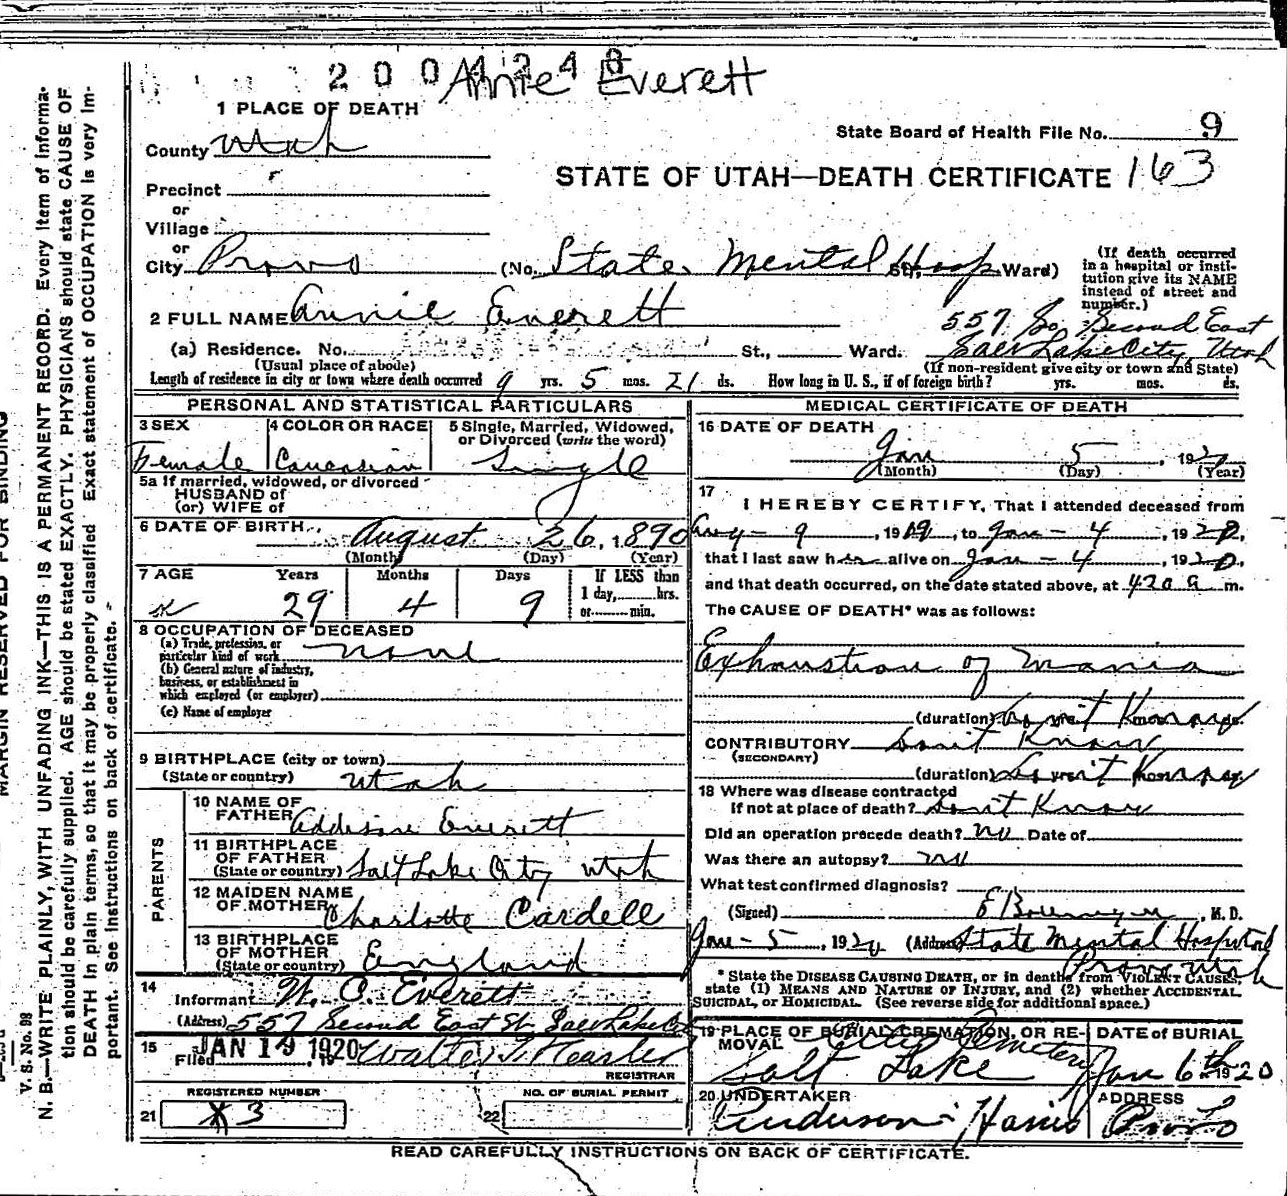 2004248
Annie Everett
1 PLACE OF DEATH
State Board of Health File No. 9
County Utah
STATE OF UTAH—DEATH CERTIFICATE 163
Precinct
or
Village
or
City Provo (No. State Mental Hosp St., Ward)
(If death occurred in a hospital or institution give its NAME instead of street and number.)
2 FULL NAME Annie Everett
557 So. Second East
(a) Residence. No. St., Ward. Salt Lake City, Utah
(Usual place of abode) (If non-resident give city or town and State)
Length of residence in city or town where death occurred 9 yrs. 5 mos. 21 ds. How long in U. S., if of foreign birth? yrs. mos. ds.
PERSONAL AND STATISTICAL PARTICULARS
3 SEX 4 COLOR OR RACE 5 Single, Married, Widowed, or Divorced (write the word)
Female Caucasian Single
5a If married, widowed, or divorced
HUSBAND of
(or) WIFE of
6 DATE OF BIRTH August 26, 1890
(Month) (Day) (Year)
7 AGE Years Months Days If LESS than 1 day, hrs. or min.
29 4 9
8 OCCUPATION OF DECEASED
(a) Trade, profession, or particular kind of work none
(b) General nature of industry, business, or establishment in which employed (or employer)
(c) Name of employer
9 BIRTHPLACE (city or town)
(State or country) Utah
PARENTS
10 NAME OF FATHER Addison Everett
11 BIRTHPLACE OF FATHER
(State or country) Salt Lake City Utah
12 MAIDEN NAME OF MOTHER Charlotte Cardell
13 BIRTHPLACE OF MOTHER
(State or country) England
14 Informant W. O. Everett
(Address) 557 Second East St. Salt Lake
15 Filed JAN 19 1920 Walter T.
REGISTRAR
REGISTERED NUMBER NO. OF BURIAL PERMIT
21 3 22
MEDICAL CERTIFICATE OF DEATH
16 DATE OF DEATH
Jan 5, 1920
(Month) (Day) (Year)
17 I HEREBY CERTIFY, That I attended deceased from
Aug - 9, 1919, to Jan - 4, 1920,
that I last saw her alive on Jan - 4, 1920,
and that death occurred, on the date stated above, at 420 a m.
The CAUSE OF DEATH* was as follows:
Exhaustion of Mania
(duration) Don't Know
CONTRIBUTORY Don't Know
(SECONDARY)
(duration) Don't Know
18 Where was disease contracted
if not at place of death? Don't Know
Did an operation precede death? no Date of
Was there an autopsy? no
What test confirmed diagnosis?
(Signed) , M. D.
Jan - 5, 1920 (Address) State Mental Hospital
Provo Utah
* State the DISEASE CAUSING DEATH, or in deaths from VIOLENT CAUSES, state (1) MEANS AND NATURE OF INJURY, and (2) whether ACCIDENTAL, SUICIDAL, or HOMICIDAL. (See reverse side for additional space.)
19 PLACE OF BURIAL, CREMATION, OR REMOVAL DATE of BURIAL
City Cemetery
Salt Lake Jan 6th 1920
20 UNDERTAKER ADDRESS
Anderson Harris Provo
READ CAREFULLY INSTRUCTIONS ON BACK OF CERTIFICATE.
MARGIN RESERVED FOR BINDING
V. S. No. 98
N. B.—WRITE PLAINLY, WITH UNFADING INK—THIS IS A PERMANENT RECORD. Every item of information should be carefully supplied. AGE should be stated EXACTLY. PHYSICIANS should state CAUSE OF DEATH in plain terms, so that it may be properly classified. Exact statement of OCCUPATION is very important. See instructions on back of certificate.